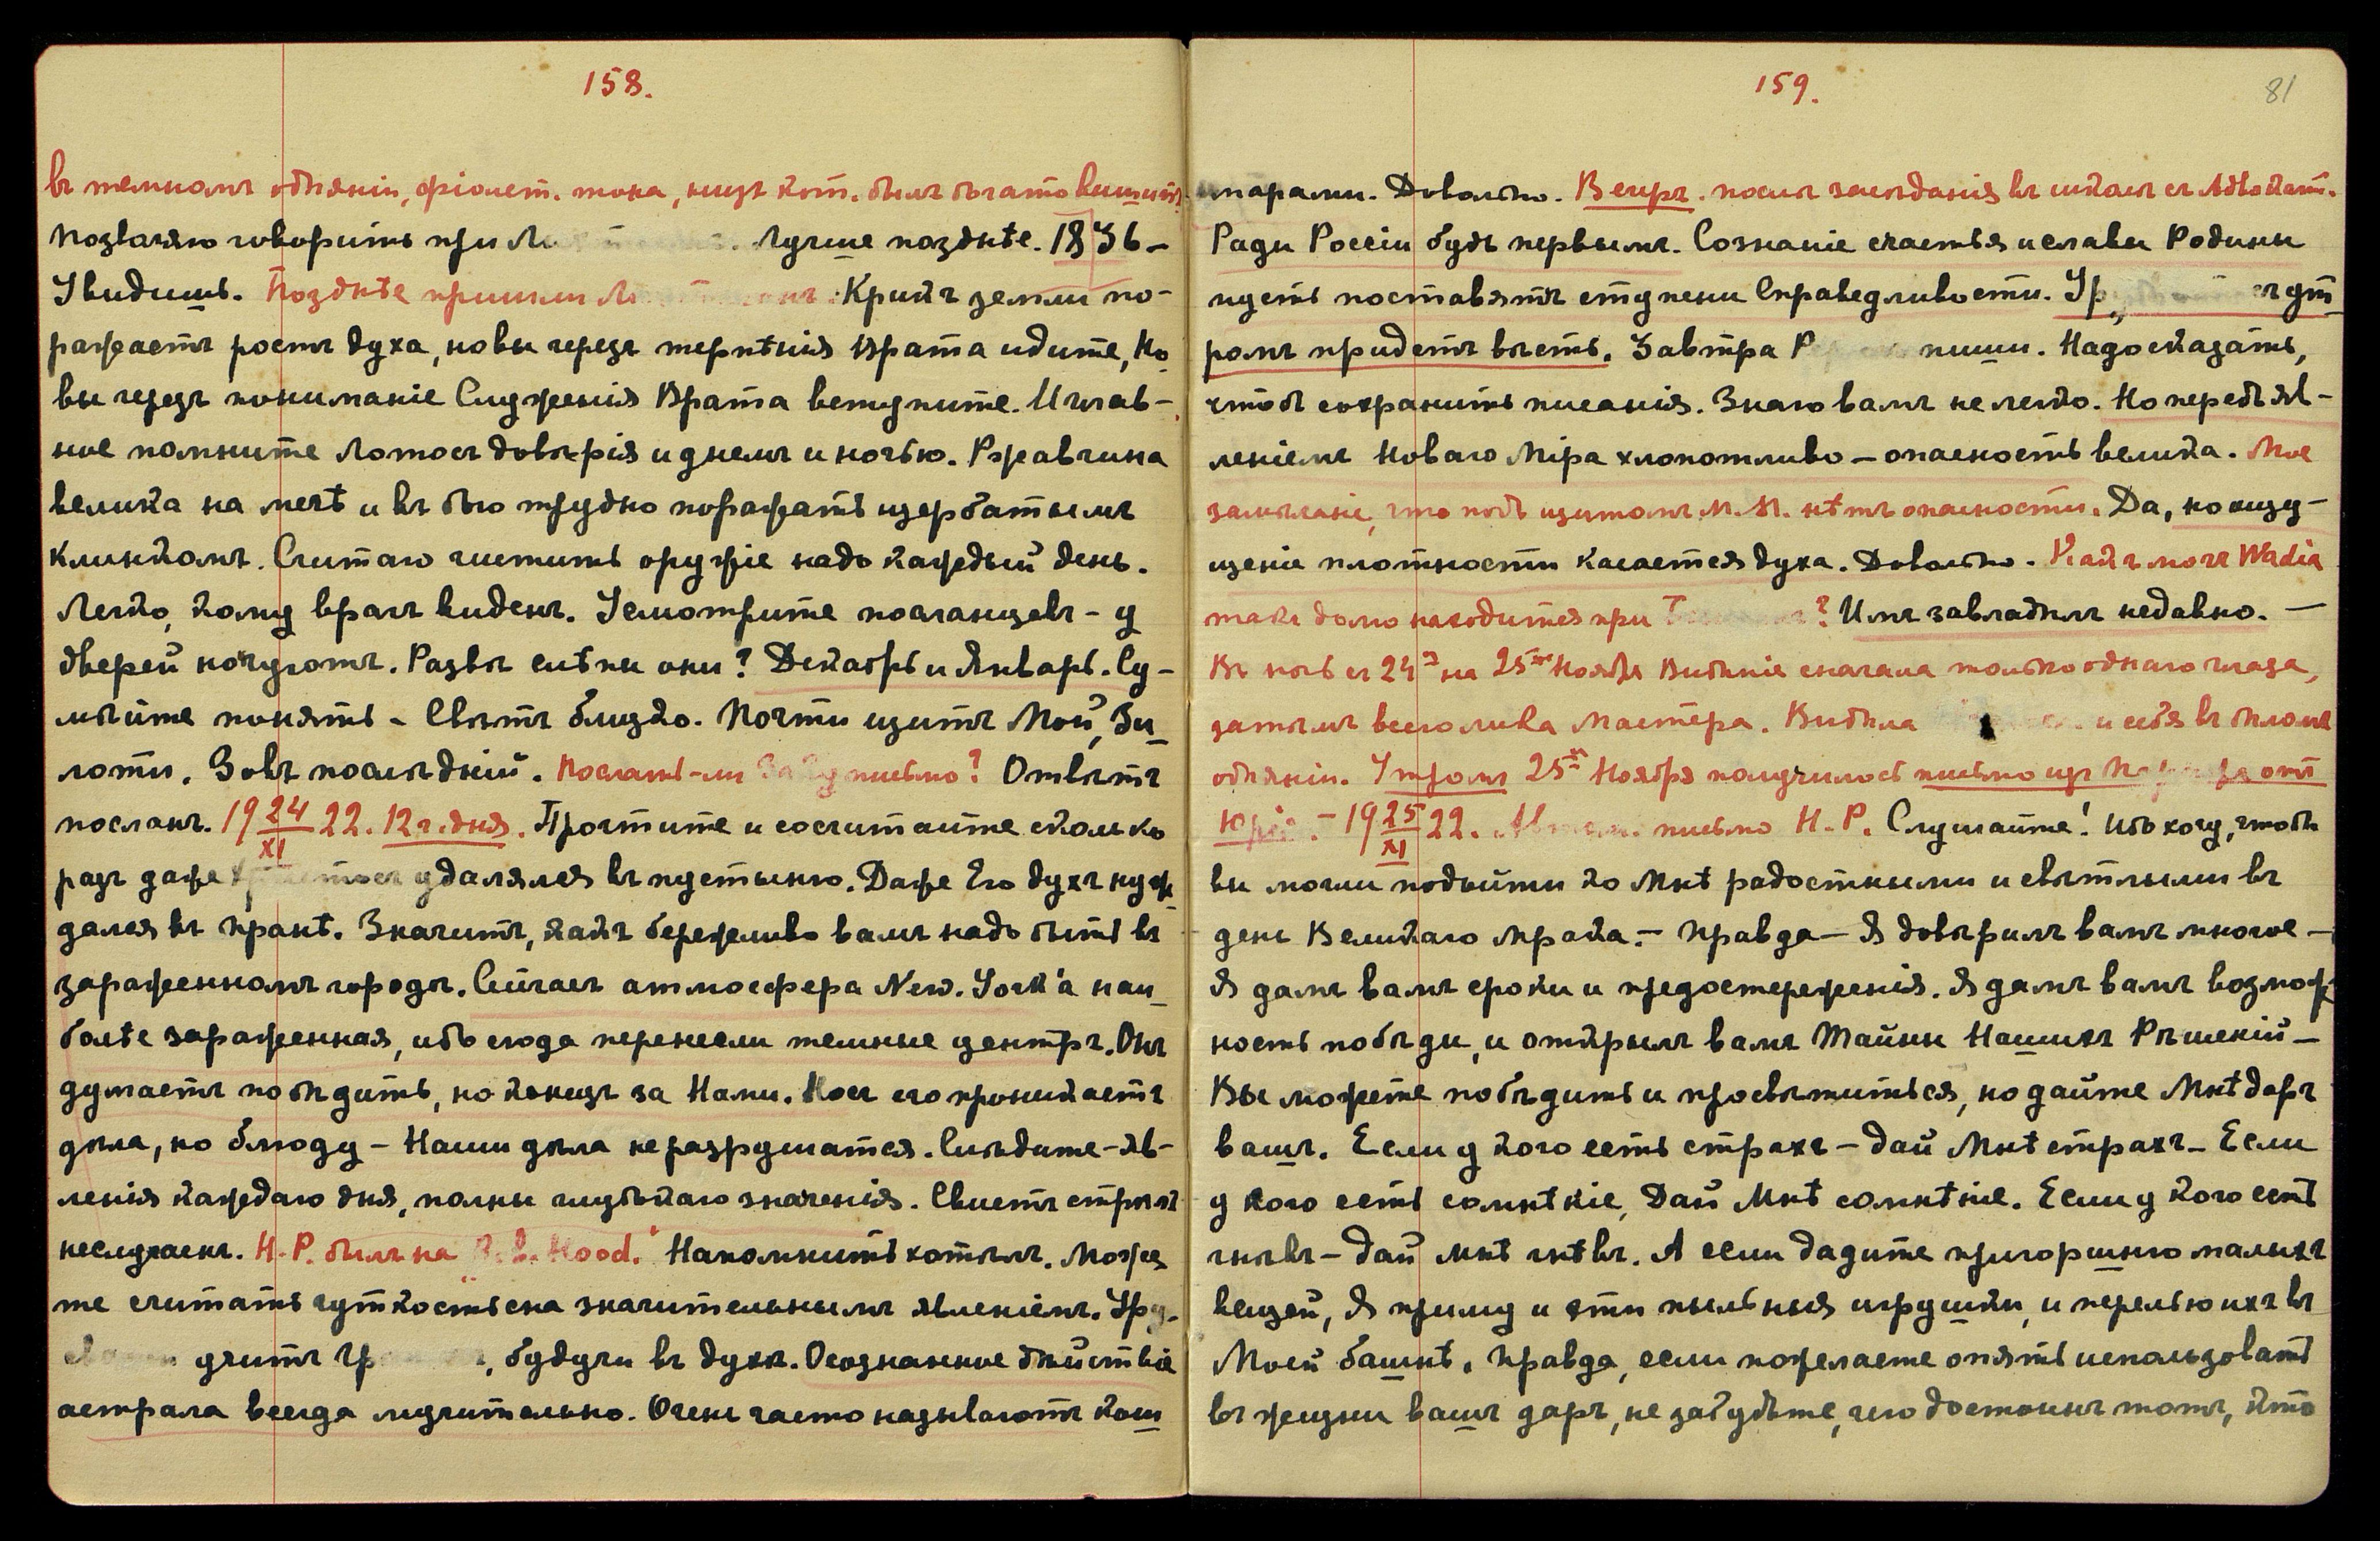 158.
въ темномъ одѣяніи, фіолет. тона, низъ кот. былъ богато вышитъ.
Позволяю говорить при Лучше позднѣе. 1836 –
Увидишь. Позднѣе пришли Крикъ земли по-
ражаетъ ростъ духа, но вы черезъ терпѣнія Врата идите, но
вы черезъ пониманіе Служенія Врата вступите. И глав-
ное помните Лотосъ довѣрія и днемъ и ночью. Ржавчина
велика на мечѣ и въ бою трудно поражать щербатымъ
клинкомъ. Считаю чистить оружіе надо каждый день.
Легко, кому врагъ виденъ. Усмотрите посланцевъ – у
дверей ночуютъ. Развѣ слѣпы они? Декабрь и Январь. Су-
мѣйте понять – Свѣтъ близко. Почти щитъ Мой, Зи
лоти. Зовъ послѣдній. Послать-ли письмо? Отвѣтъ
посланъ. 19 24/XI 22. 12 ч. дня. Прочтите и сосчитайте сколько
разъ даже удалялся въ пустыню. Даже Его духъ нуж
дался въ пранѣ. Значитъ, какъ бережливо вамъ надо быть въ
зараженномъ городѣ. Сейчасъ атмосфера New. York'а наи
болѣе зараженная, ибо сюда перенесли темные центръ. Онъ
думаетъ побѣдить, но конецъ за Нами. Носъ его проникаетъ
дѣла, но блюду – Наши дѣла не разрушатся. Слѣдите – яв-
ленія каждаго дня, полны глубокаго значенія. Свистъ стрѣлъ
неслучаенъ. Н.Р. былъ на Hood." Напомнить хотѣлъ. Може
те считать чуткость сна значительнымъ явленіемъ. Ур
учитъ , будучи въ духѣ. Осознанное дѣйствіе
астрала всегда мучительно. Очень часто называютъ кош
159.
81
марами. Довольно. Вечръ. послѣ засѣданія въ школѣ съ Адвокат.
Ради Россіи будь первымъ. Сознаніе счастья и славы Родины
пусть поставятъ ступени Справедливости. съ ут
ромъ придетъ вѣсть. Завтра пиши. Надо сказать,
чтобъ сохранить писанія. Знаю вамъ не легко. Но передъ яв-
леніемъ Новаго Міра хлопотливо – опасность велика. Мое
замѣчаніе, что подъ щитомъ М.М. нѣтъ опасности. Да, но ощу-
щеніе плотности касается духа. Довольно. Какъ могъ Wadia
такъ долго находится при ? Имъ завладѣлъ недавно. –
Въ ночь съ 24го на 25ое Ноября Видѣніе сначала только однаго глаза,
затѣмъ всего лика Мастера. Видѣла и себя въ бѣломъ
одѣяніи. Утромъ 25го Ноября получилось письмо изъ отъ
Юрія. – 19 25/XI 22. письмо Н.Р. Слушайте! Ибо хочу, чтобъ
вы могли подойти ко Мнѣ радостными и свѣтлыми въ
день Великаго Мрака. – Правда – Я довѣрилъ вамъ многое –
Я далъ вамъ сроки и предостереженія. Я далъ вамъ возмож
ность побѣды, и открылъ вамъ Тайны Нашихъ Рѣшеній –
Вы можете побѣдить и просвѣтиться, но дайте Мнѣ даръ
вашъ. Если у кого есть страхъ – дай Мнѣ страхъ – Если
у кого есть сомнѣніе, Дай Мнѣ сомнѣніе. Если у кого есть
гнѣвъ – дай мнѣ гнѣвъ. А если дадите пригоршню малыхъ
вещей, Я приму и эти пыльныя игрушки, и перелью ихъ въ
Моей башнѣ. Правда, если пожелаете опять использовать
въ жизни вашъ даръ, не забудьте, чего достоинъ тотъ, кто